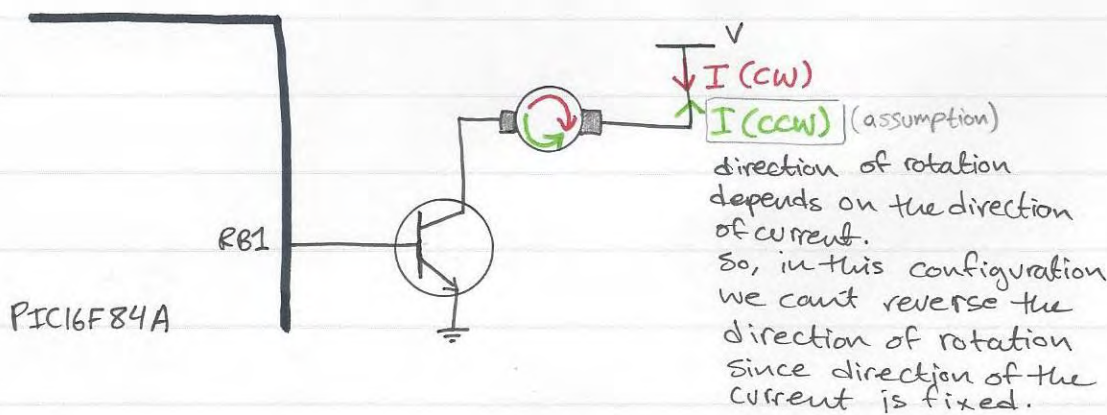 V
I (CW)
I (CCW) (assumption)
direction of rotation
depends on the direction
of current.
So, in this configuration
we can't reverse the
direction of rotation
since direction of the
current is fixed.
RB1
PIC16F84A